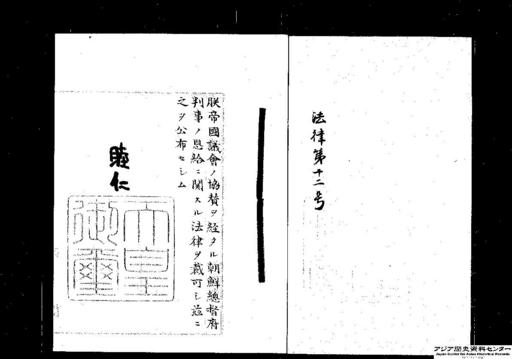 法律第十二号
朕帝國議會ノ協賛ヲ經タル朝鮮總督府
判事ノ恩給ニ關スル法律ヲ裁可シ茲ニ
之ヲ公布セシム
睦仁
天皇
御璽
アジア歴史資料センター
Japan Center for Asian Historical Records